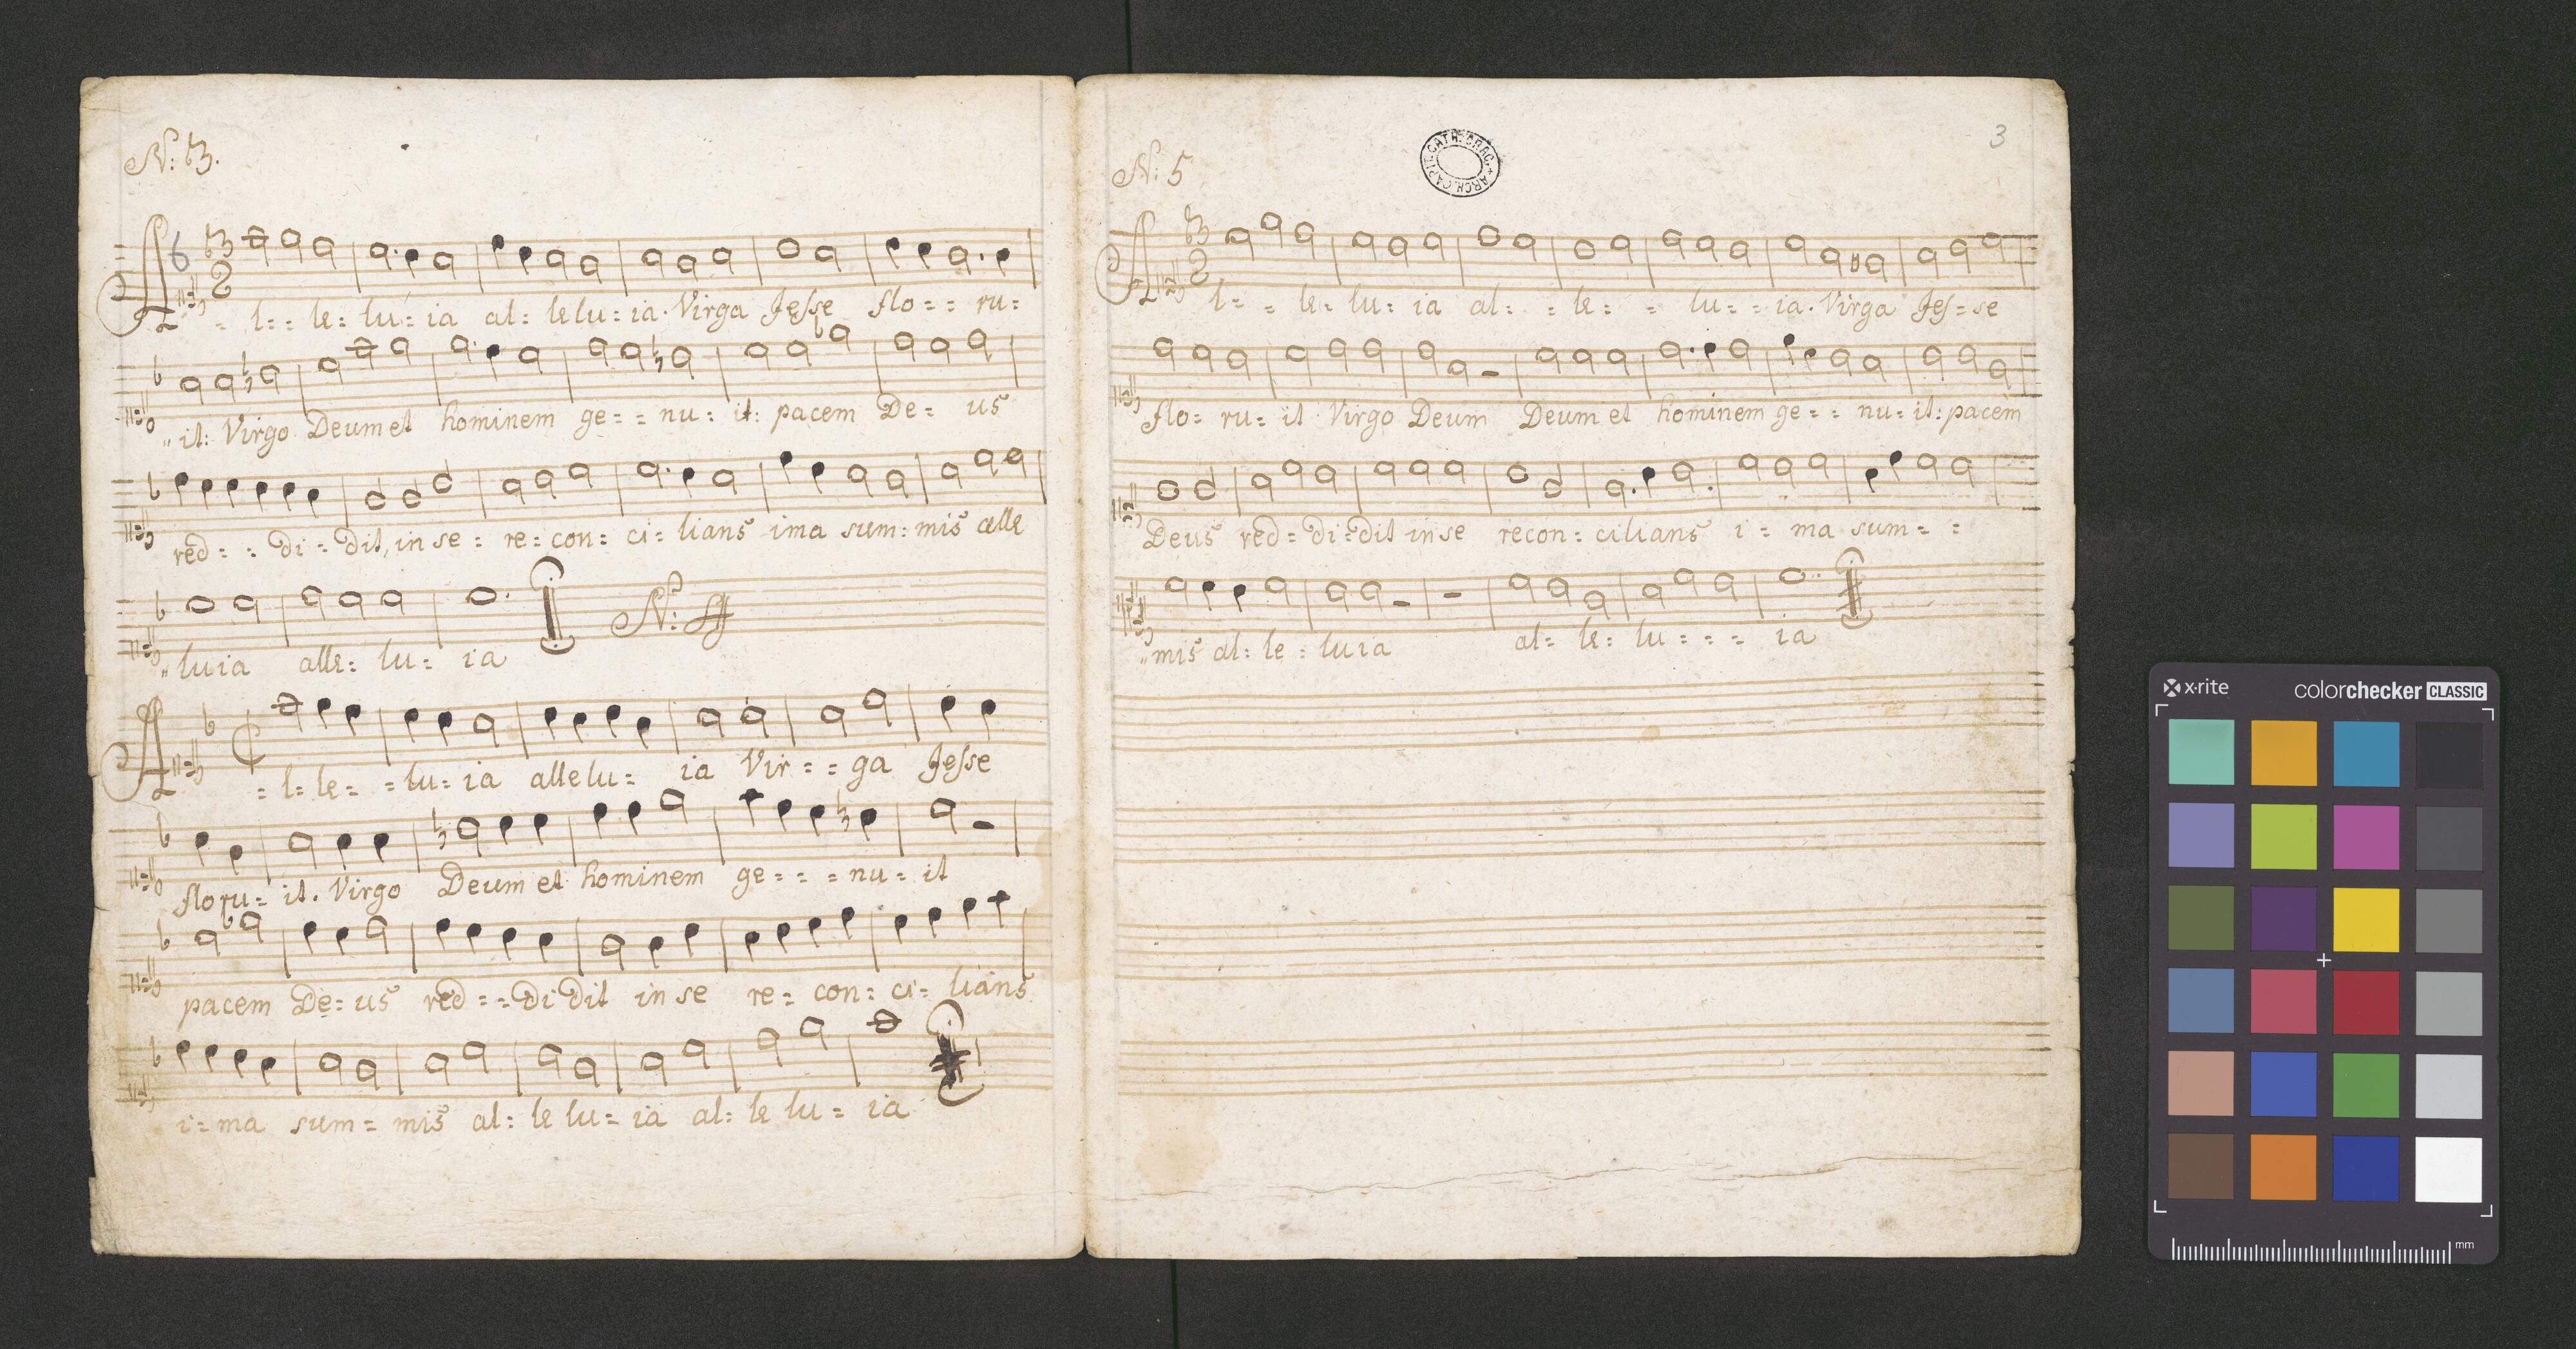 N: 3.
6 3
2
A = l = = le = lu = ia al = le lu = ia. Virga Jesse flo = = ru =
" it: Virgo Deum et hominem ge = = nu : it: pacem De = us
red = = di = dit, in se = re = con = ci = lians ima sum = mis alle
" luia alle = lu = ia N:
A = l = le = = lu = ia allelu = ia Vir = = ga Jesse
floru = it. Virgo Deum et hominem ge = = = nu = it
pacem De = us red = = di dit in se re = con = ci = lians
i = ma sum = mis al = le lu = ia al = le lu = ia
N: 5
ARCH. CAPIT. CATH. CRAC.
3
3
2
A l = = le = lu = ia al = = le = = lu = = ia. Virga Jes = se
flo = ru = it Virgo Deum Deum et hominem ge = = nu = it: pacem
Deus red = di = dit in se recon = cilians i = ma sum = =
" mis al = le = luia al = le = lu = = = ia
x·rite
colorchecker CLASSIC
mm